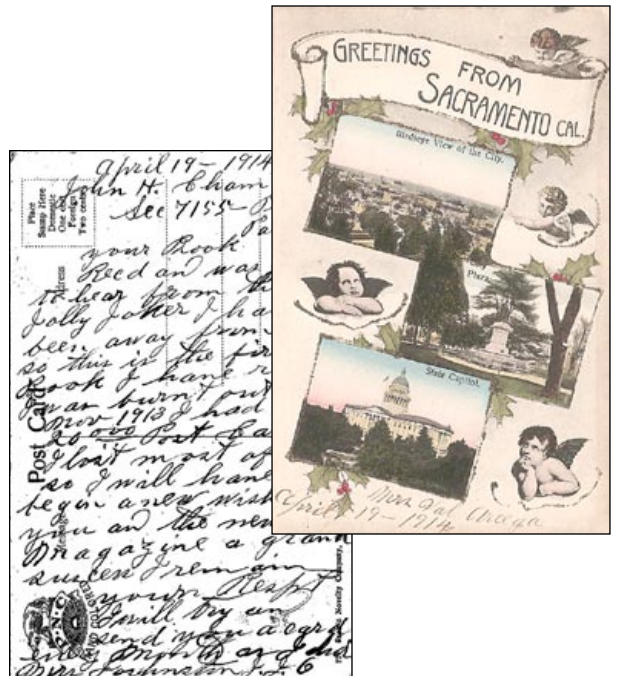 GREETINGS FROM
SACRAMENTO CAL.
Birdseye View of the City.
Plaza.
State Capitol.
Mrs Gal
April 19-1914
April 19-1914
John H. Cham
See 7155-
your Book
Recd an was
to hear from th
Jolly Joker I ha
been away from
so this is the fir
Book I have r
I was burnt out
Nov 1913 I had
Post Ca
I lost most of
so I will have
begin anew wish
you an the new
Magazine a grand
success I remain
yours Respt
I will try an
send you a card
every Month
Place
Stamp Here
Domestic
One cent
Foreign
Two cents
Adress
Post Card
Message
P.N.C.
HAND COLORED
Novelty Company,